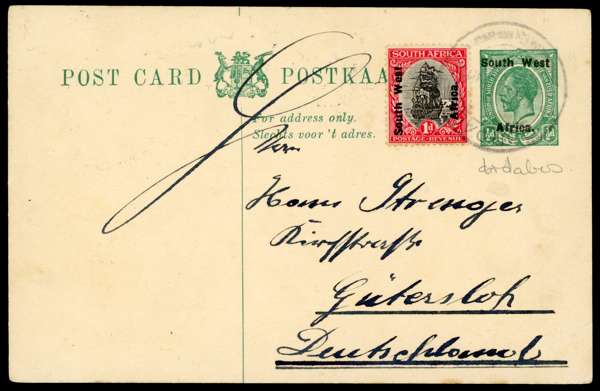 POST CARD POSTKAA
For address only.
Slechts voor 't adres.
SOUTH AFRICA
South West Africa
1D
POSTAGE-REVENUE
South West
Africa.
Herrn
Hans Strenger
Kirchstraße
Gütersloh
Deutschland